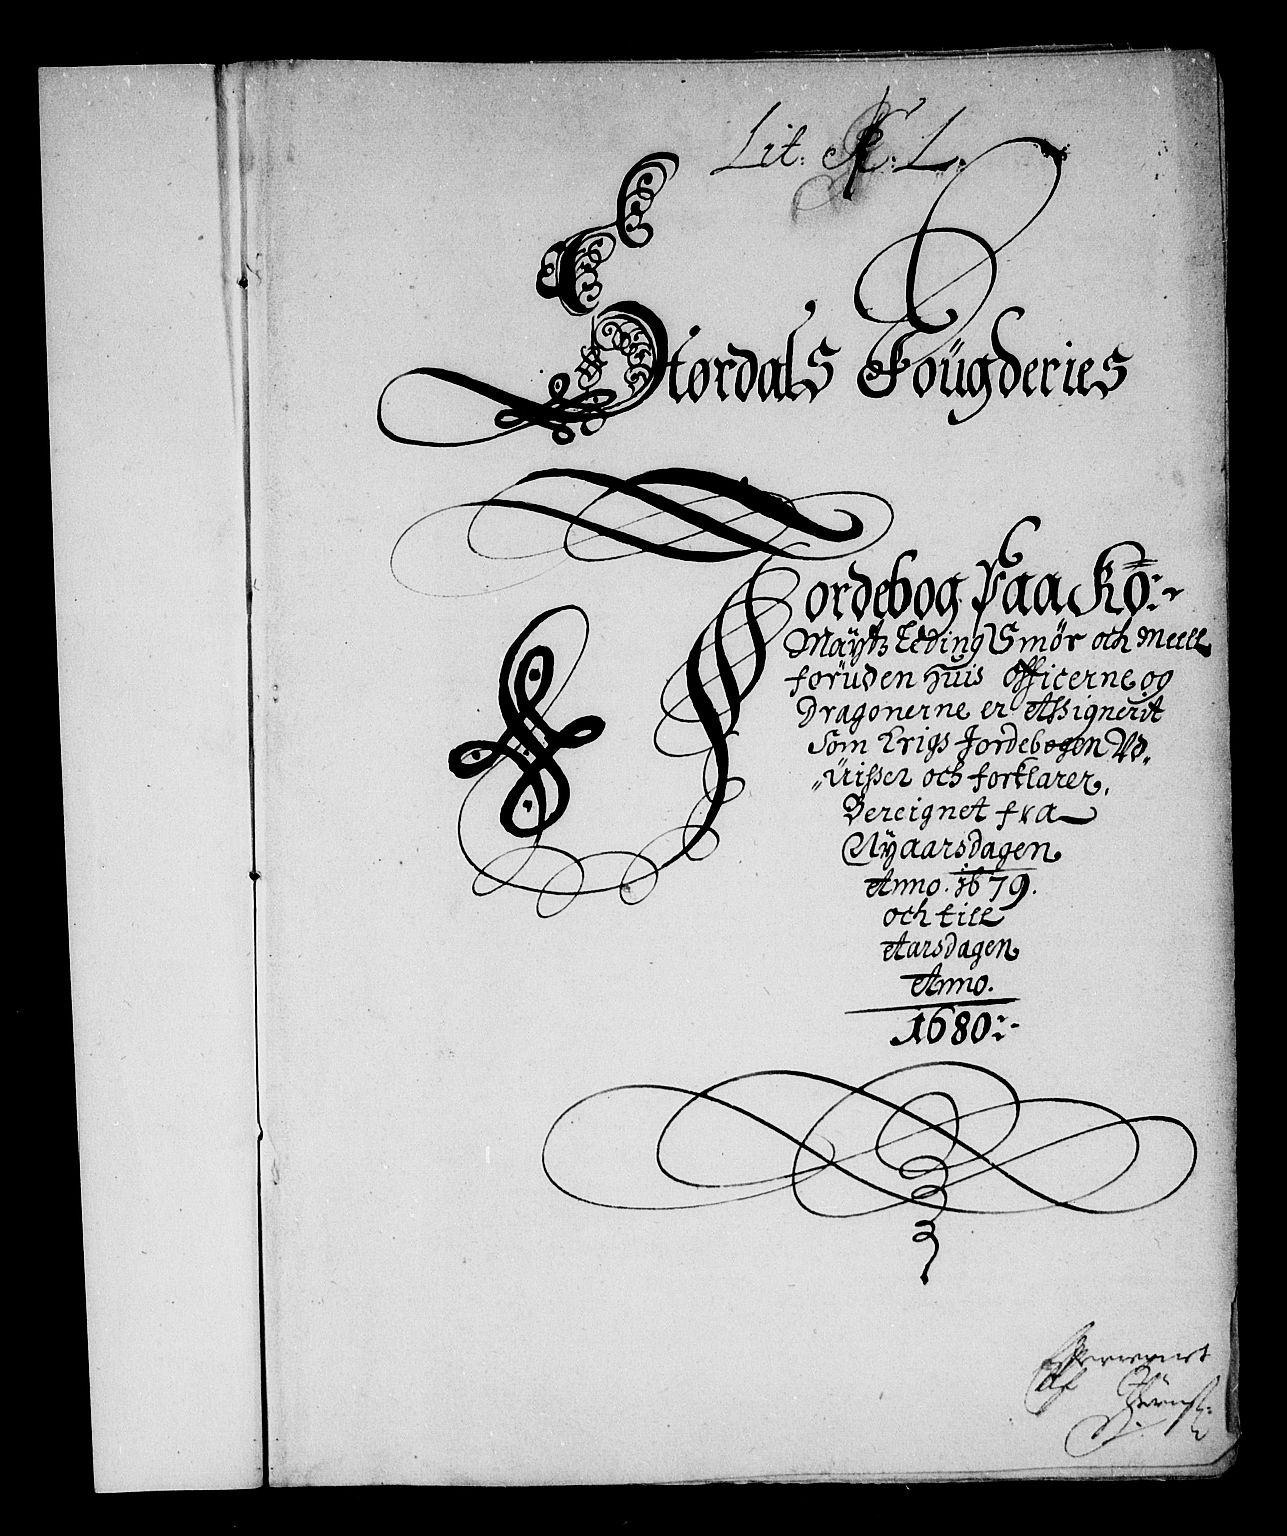 Lit: L.
Størdals Foügderies
Jordebog Paa Kö:~
Mayts Leding Smör och Meell
forüden huis officerne og
Dragonerne er Assignerit
Som krigs Jordebogen Vd„
„üisser och forklarer,
Bereignet fra
Nyaarsdagen
Anno. 1679.
och till
Aarsdagen
Anno.
1680:-
af